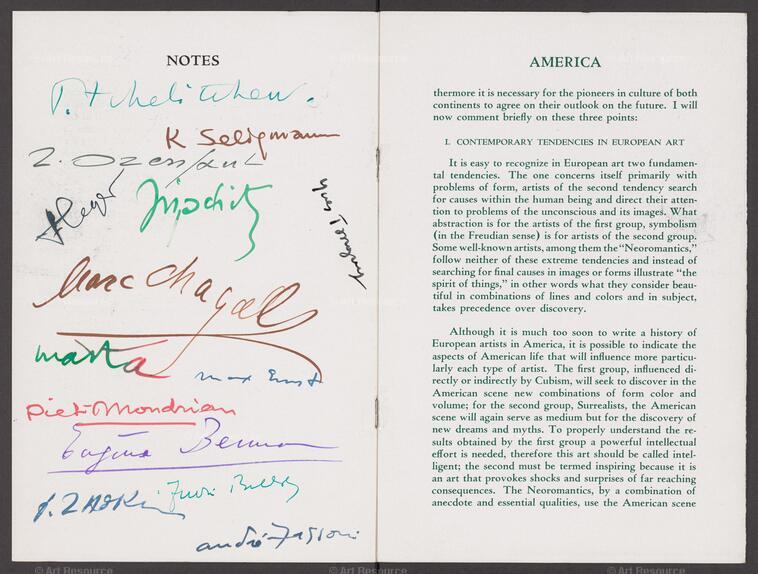 NOTES
P. Tchelitchew.
K Seligmann
Lipchitz
Yves Tanguy
Marc Chagall
matta
max Ernst
piet Mondrian
Eugène Berman
O. Zadkine
andré Masson
AMERICA
thermore it is necessary for the pioneers in culture of both
continents to agree on their outlook on the future. I will
now comment briefly on these three points:
I. CONTEMPORARY TENDENCIES IN EUROPEAN ART
It is easy to recognize in European art two fundamen-
tal tendencies. The one concerns itself primarily with
problems of form, artists of the second tendency search
for causes within the human being and direct their atten-
tion to problems of the unconscious and its images. What
abstraction is for the artists of the first group, symbolism
(in the Freudian sense) is for artists of the second group.
Some well-known artists, among them the "Neoromantics,"
follow neither of these extreme tendencies and instead of
searching for final causes in images or forms illustrate "the
spirit of things," in other words what they consider beau-
tiful in combinations of lines and colors and in subject,
takes precedence over discovery.
Although it is much too soon to write a history of
European artists in America, it is possible to indicate the
aspects of American life that will influence more particu-
larly each type of artist. The first group, influenced di-
rectly or indirectly by Cubism, will seek to discover in the
American scene new combinations of form color and
volume; for the second group, Surrealists, the American
scene will again serve as medium but for the discovery of
new dreams and myths. To properly understand the re-
sults obtained by the first group a powerful intellectual
effort is needed, therefore this art should be called intel-
ligent; the second must be termed inspiring because it is
an art that provokes shocks and surprises of far reaching
consequences. The Neoromantics, by a combination of
anecdote and essential qualities, use the American scene
© Art Resource